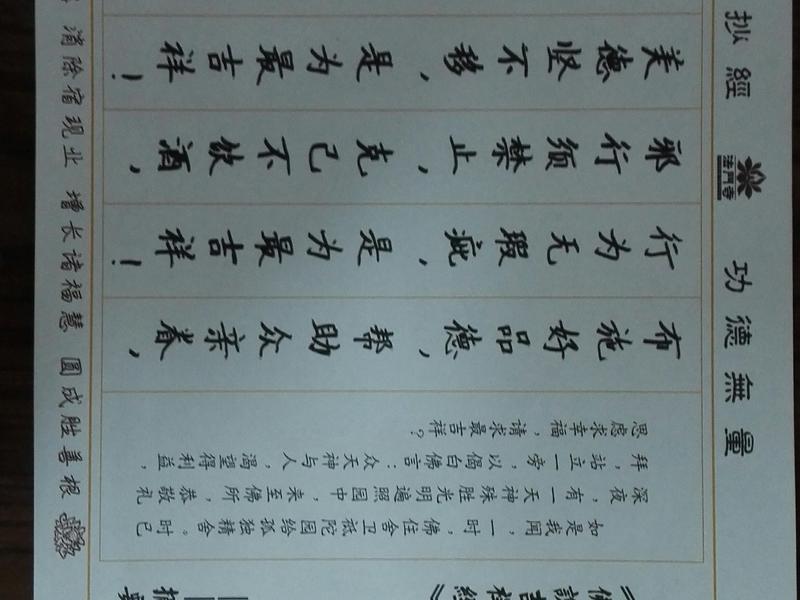 抄經 法門寺 功德無量
《佛說吉祥經》
如是我闻，一时，佛住舍卫祗陀园给孤独精舍。时已
深夜，有一天神殊胜光明遍照园中，来至佛所，恭敬礼
拜，站立一旁，以偈白佛言：众天神与人，渴望得利益，
思虑求幸福，请求最吉祥？
布施好品德，帮助众亲眷，
行为无瑕疵，是为最吉祥！
邪行须禁止，克己不饮酒，
美德坚不移，是为最吉祥！
消除宿现业 增长诸福慧 圆成胜善根